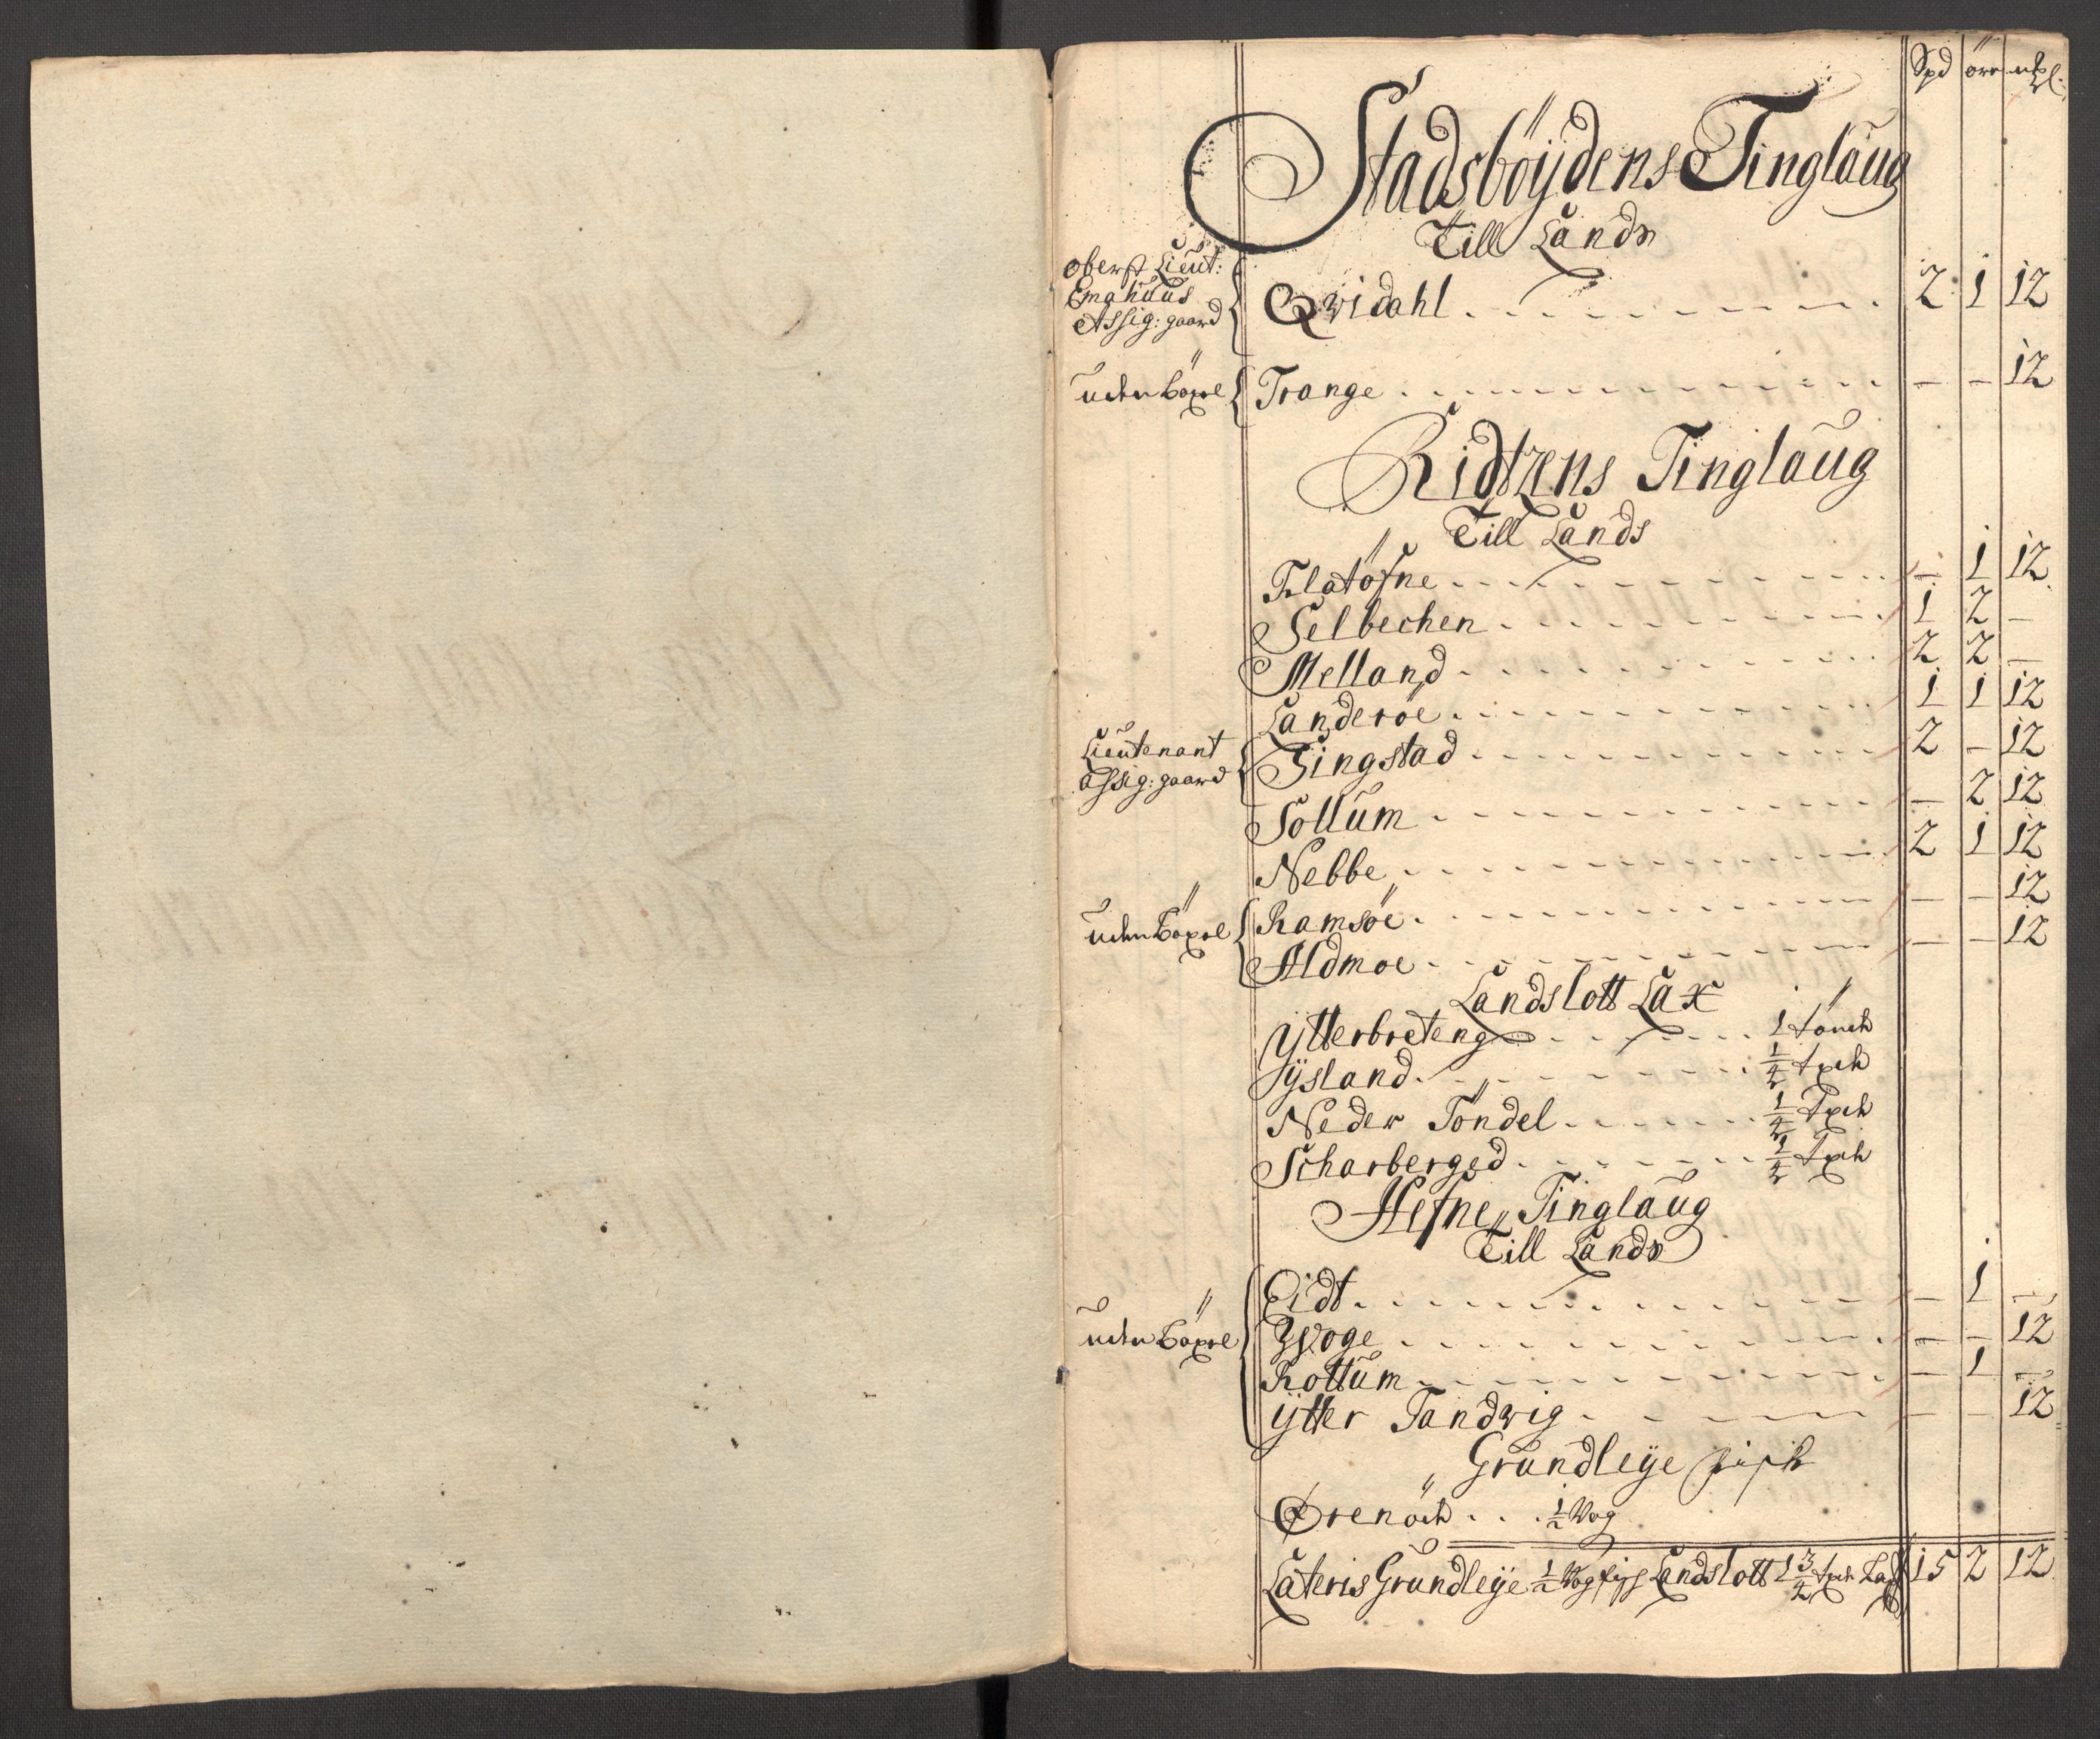 Spd öre mkl:
Stadsböÿdens Tinglaug
Till Lands
oberst Lieut:
Emahuus
Assig: gaard
Qvidahl 2 1 12
uden böxel
Trange - - 12
Ridtzens Tinglaug
Till Lands
Flatöfne - 1 12
Selbechen 1 2 -
Melland 2 2 -
Landeröe 1 1 12
Lieutenant
assig: gaard
Singstad 2 - 12
Sollum - 2 12
Nebbe 2 1 12
uden Böxel
Ramsöe - - 12
Aldmoe - - 12
Landslott Lax
Ytterbreteng 1 tönde
Iÿsland ¼ tpch
Neder Töndel ¼ Tpch
Scharberged ¼ Tpch
Hefne Tinglaug
Till Lands
Eidt - 1 -
uden Böxel
Woge - - 12
Rottum - 1 -
Ytter Tandvig - - 12
Grundleÿe fisk
Örenöch ½ Vog
Lateris Grundleÿe ½ Vog fisk Landslott 1¾ tpch Lax 15 2 12